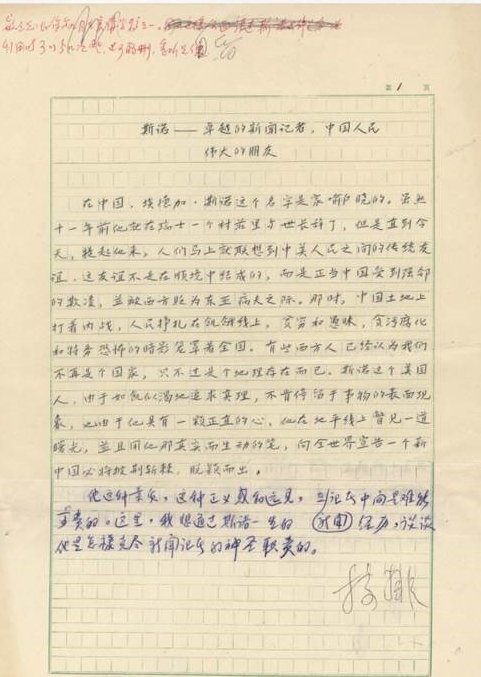 第 1 页
斯诺——卓越的新闻记者,中国人民
伟大的朋友
在中国,埃德加·斯诺这个名字是家喻户晓的。虽然
十一年前他就在瑞士一个村庄里与世长辞了,但是直到今
天,提起他来,人们马上就联想到中美人民之间的传统友
谊。这友谊不是在顺境中结成的,而是正当中国受到强邻
的欺凌,并被西方贬为东亚病夫之际。那时,中国土地上
打着内战,人民挣扎在饥饿线上,贫穷和愚昧,贪污腐化
和特务恐怖的暗影笼罩着全国。有些西方人已经认为我们
不再是个国家,只不过是个地理存在而已。斯诺这个美国
人,由于如饥似渴地追求真理,不肯停留于事物的表面现
象,也由于他具有一颗正直的心,他在地平线上瞥见一道
曙光,并且用他那真实而生动的笔,向全世界宣告一个新
中国必将披荆斩棘,脱颖而出。
他这种 这种正义感和远见,当记者中间是难能
可贵的。这里,我想通过斯诺一生的 新闻 经历,谈谈
他是怎样克尽新闻记者的神圣职责的。